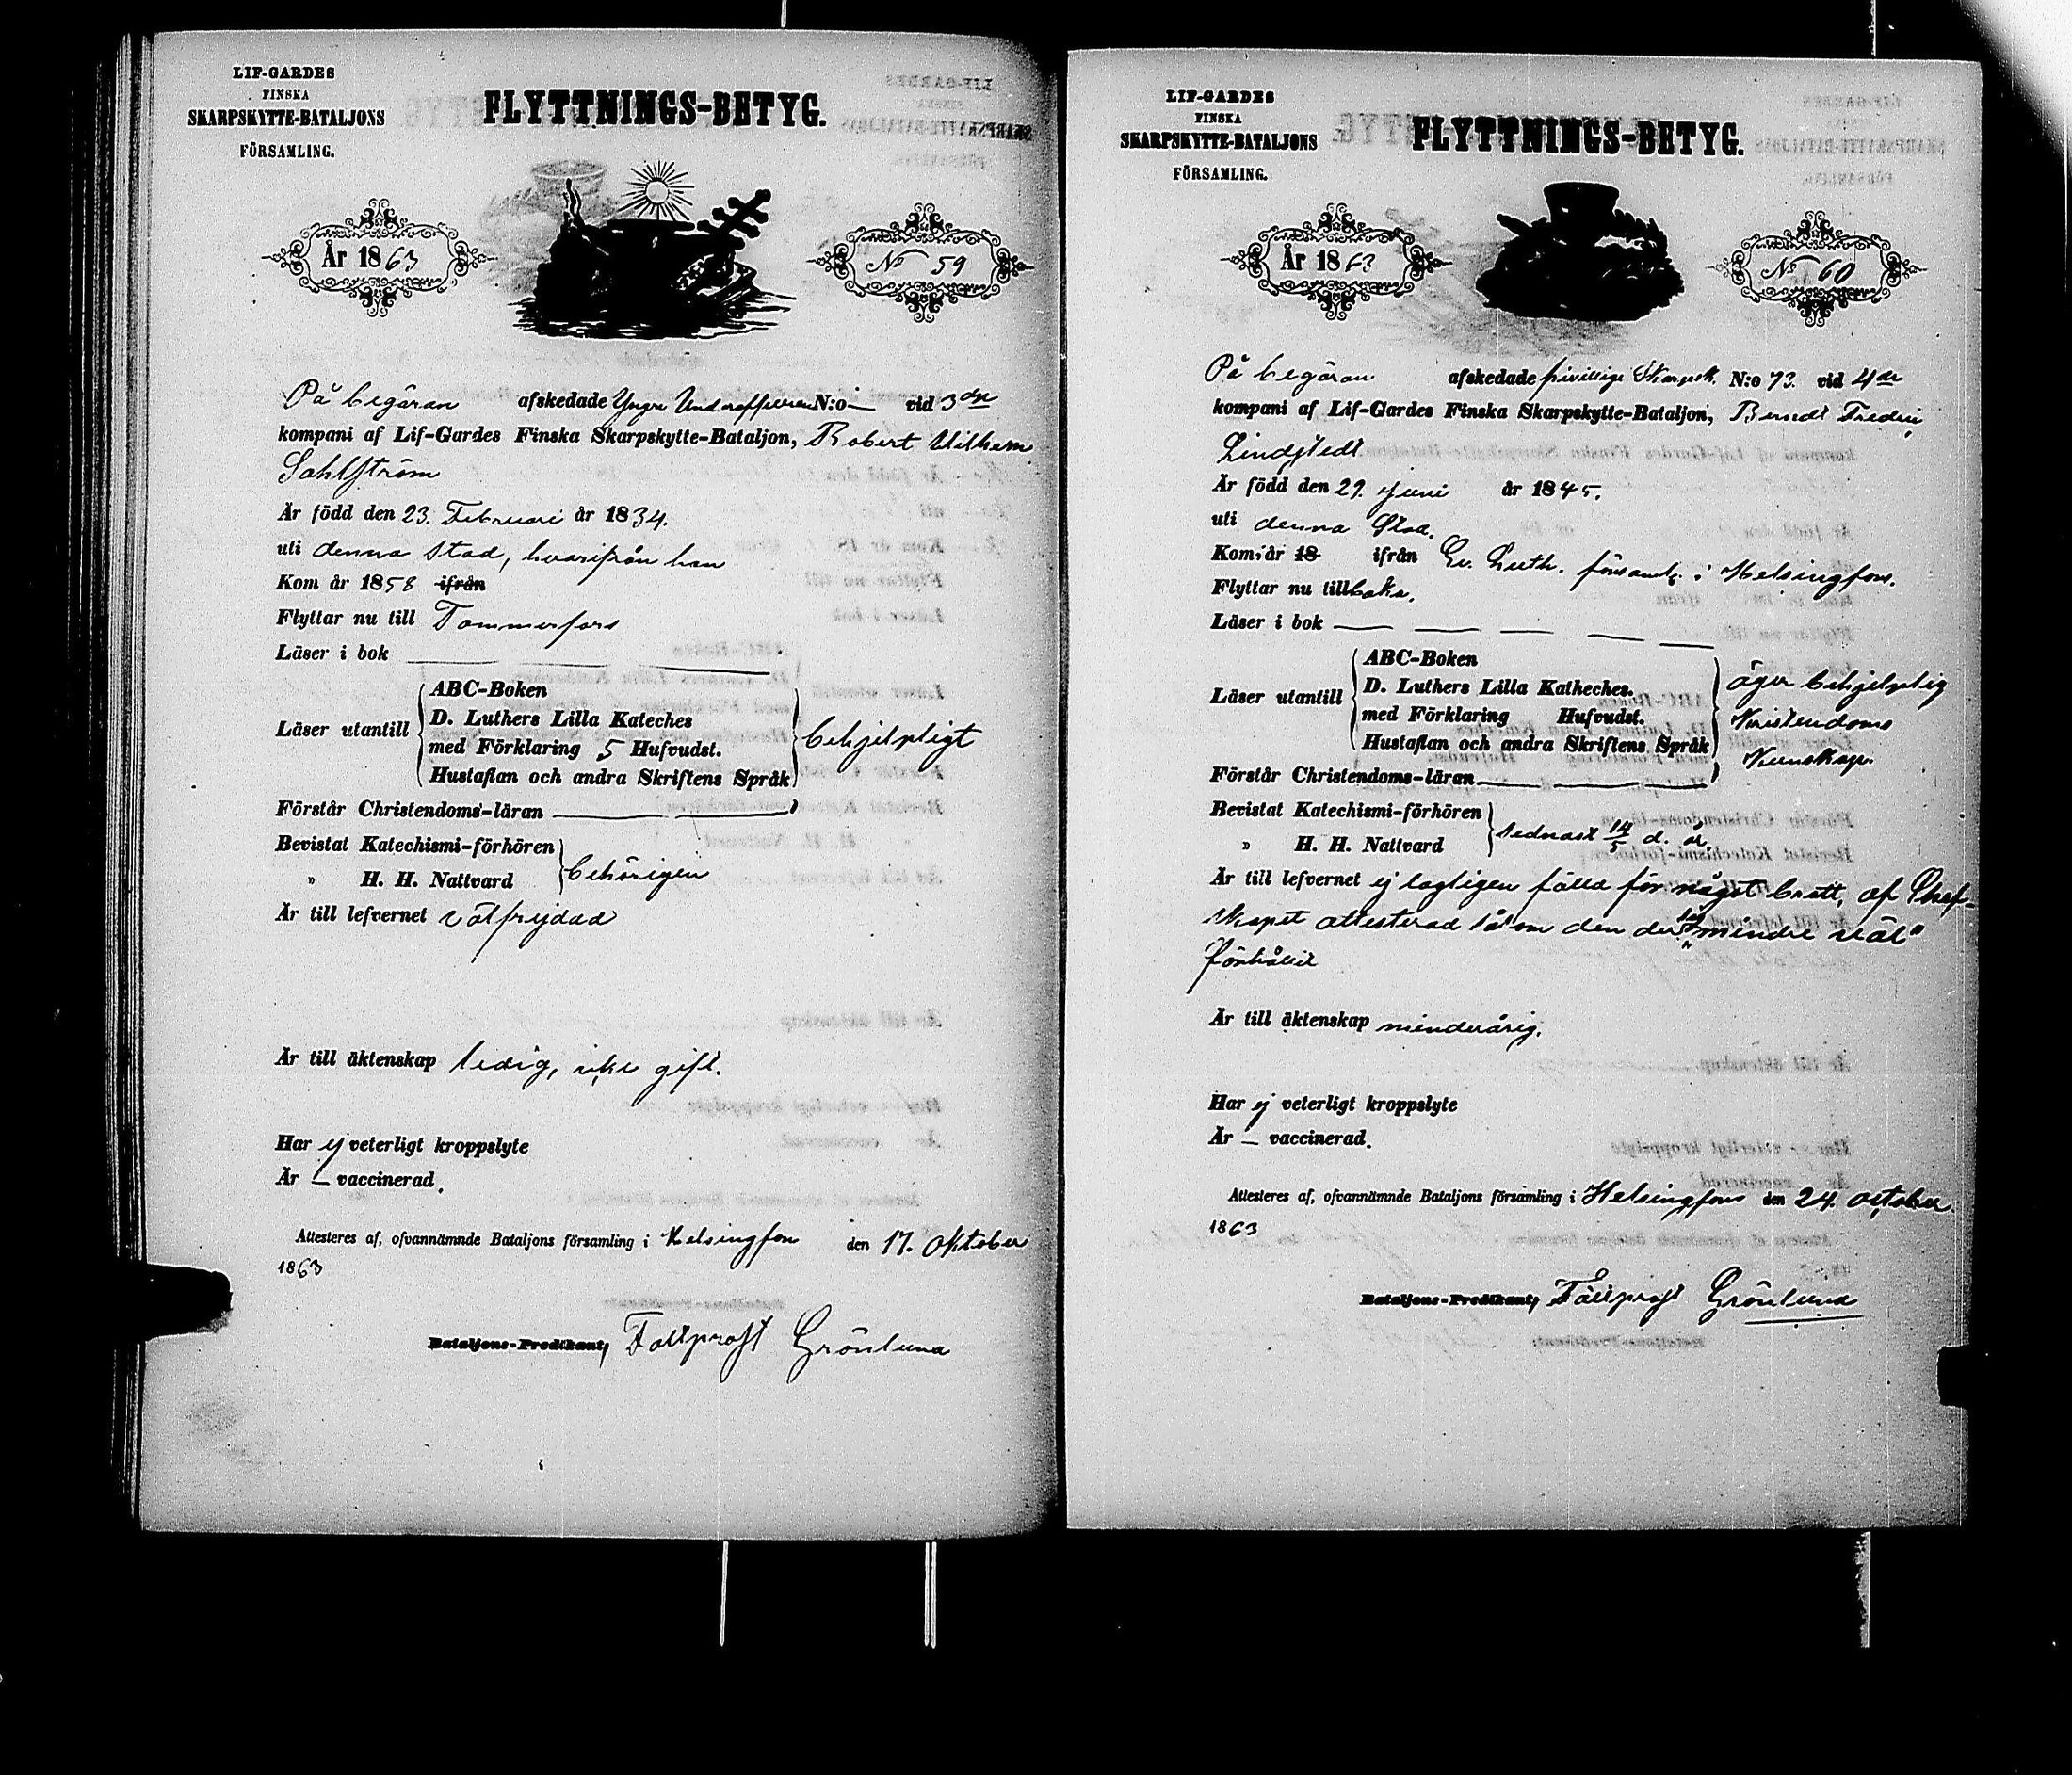 LIF-GARDES
FINSKA
SKARPSKYTTE-BATALJONS
FÖRSAMLING.
FLYTTNINGS-BETYG.
År 1863
No 59
På begäran afskedade Yngre Underofficeren N:o — vid 3dje
kompani af Lif-Gardes Finska Skarpskytte-Bataljon, Robert Vilhelm
Sahlström
Är född den 23. Februari år 1834.
uti denna stad, hvarifrån han
Kom år 1858 ifrån
Flyttar nu till Tammerfors
Läser i bok
ABC-Boken
D. Luthers Lilla Kateches
Läser utantill
med Förklaring 5 Hufvudst.
behjelpligt
Hustaflan och andra Skriftens Språk
Förstår Christendoms-läran
Bevistat Katechismi-förhören
" H. H. Nattvard
behörigen
Är till lefvernet välfrejdad
Är till äktenskap ledig, icke gift.
Har ej veterligt kroppslyte
Är — vaccinerad.
Attesteres af, ofvannämnde Bataljons församling i Helsingfors den 17. Oktober
1863
Bataljons-Predikant, Fältprost Grönlund
LIF-GARDES
FINSKA
SKARPSKYTTE-BATALJONS
FÖRSAMLING.
FLYTTNINGS-BETYG.
År 1863
No 60
På begäran afskedade frivillige Skarpsk. N:o 73. vid 4de
kompani af Lif-Gardes Finska Skarpskytte-Bataljon, Berndt Fredric
Lindstedt
Är född den 29. Juni år 1845.
uti denna Stad.
Kom år 18 ifrån Ev. Luth. församl. i Helsingfors.
Flyttar nu tillbaka.
Läser i bok
ABC-Boken
D. Luthers Lilla Katheches.
Läser utantill
med Förklaring Hufvudst.
Hustaflan och andra Skriftens Språk
äger behjelplig
Kristendoms
Kunskap.
Förstår Christendoms-läran
Bevistat Katechismi-förhören
" H. H. Nattvard
sednast 14/5 d. år
Är till lefvernet ej lagligen fälld för något brott, af Chef-
skapet attesterad såsom den der "mindre väl"
förhållit
Är till äktenskap minderårig.
Har ej veterligt kroppslyte
Är — vaccinerad.
Attesteres af, ofvannämnde Bataljons församling i Helsingfors den 24. october
1863
Bataljons-Predikant, Fältprost Grönlund